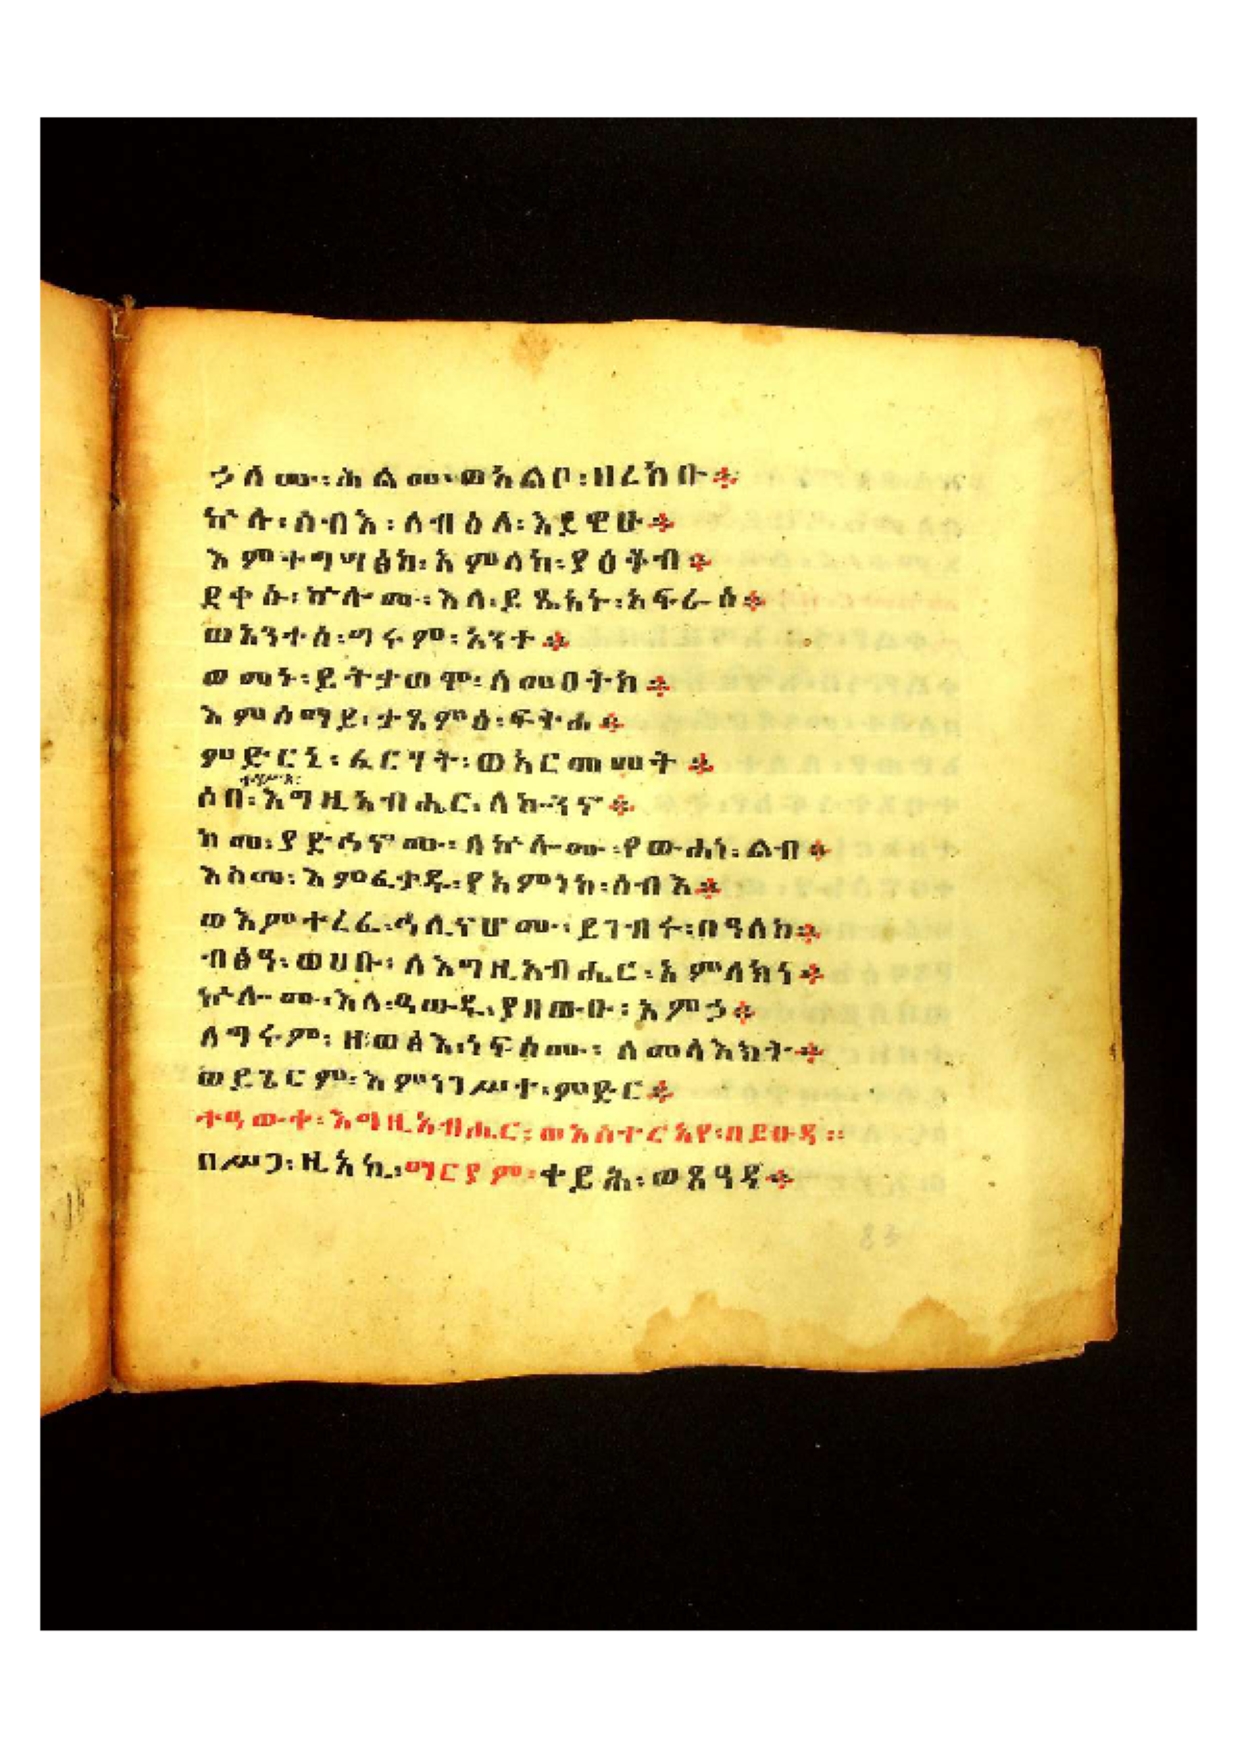 ኃለሙ፡ሕልመ፡ወአልቦ፡ዘረከቡ።
ኵሉ፡ሰብእ፡ለብዕለ፡እደዊሁ።
እምተግሣፅከ፡አምላከ፡ያዕቆብ።
ደቀሱ፡ኵሎሙ፡እለ፡ይጼአኑ፡አፍራሰ።
ወአንተሰ፡ግሩም፡አንተ።
ወመኑ፡ይትቃወሞ፡ለመዐትከ።
እምሰማይ፡ታጸምዕ፡ፍትሐ።
ምድርኒ፡ፈርሃት፡ወአርመመት።
ተንሥአ፡
ሶበ፡እግዚአብሔር፡ለኰንኖ።
ከመ፡ያድኅኖሙ፡ለኵሎሙ፡የውሐነ፡ልብ።
እስመ፡እምፈቃዱ፡የአምነከ፡ሰብእ።
ወእምተረፈ፡ኅሊናሆሙ፡ይገብሩ፡በዓለከ።
ብፅዓ፡ወሀቡ፡ለእግዚአብሔር፡አምላክነ።
ኵሎሙ፡እለ፡ዓውዱ፡ያበውኡ፡አምኃ።
ለግሩም፡ዘያወፅእ፡ነፍሶሙ፡ለመላእክት።
ወይጌርም፡እምነገሥተ፡ምድር።
ተዓውቀ፡እግዚአብሔር፡ወአስተርአየ፡በይሁዳ።
በሥጋ፡ዚአኪ፡ማርያም፡ቀይሕ፡ወጸዓዳ።